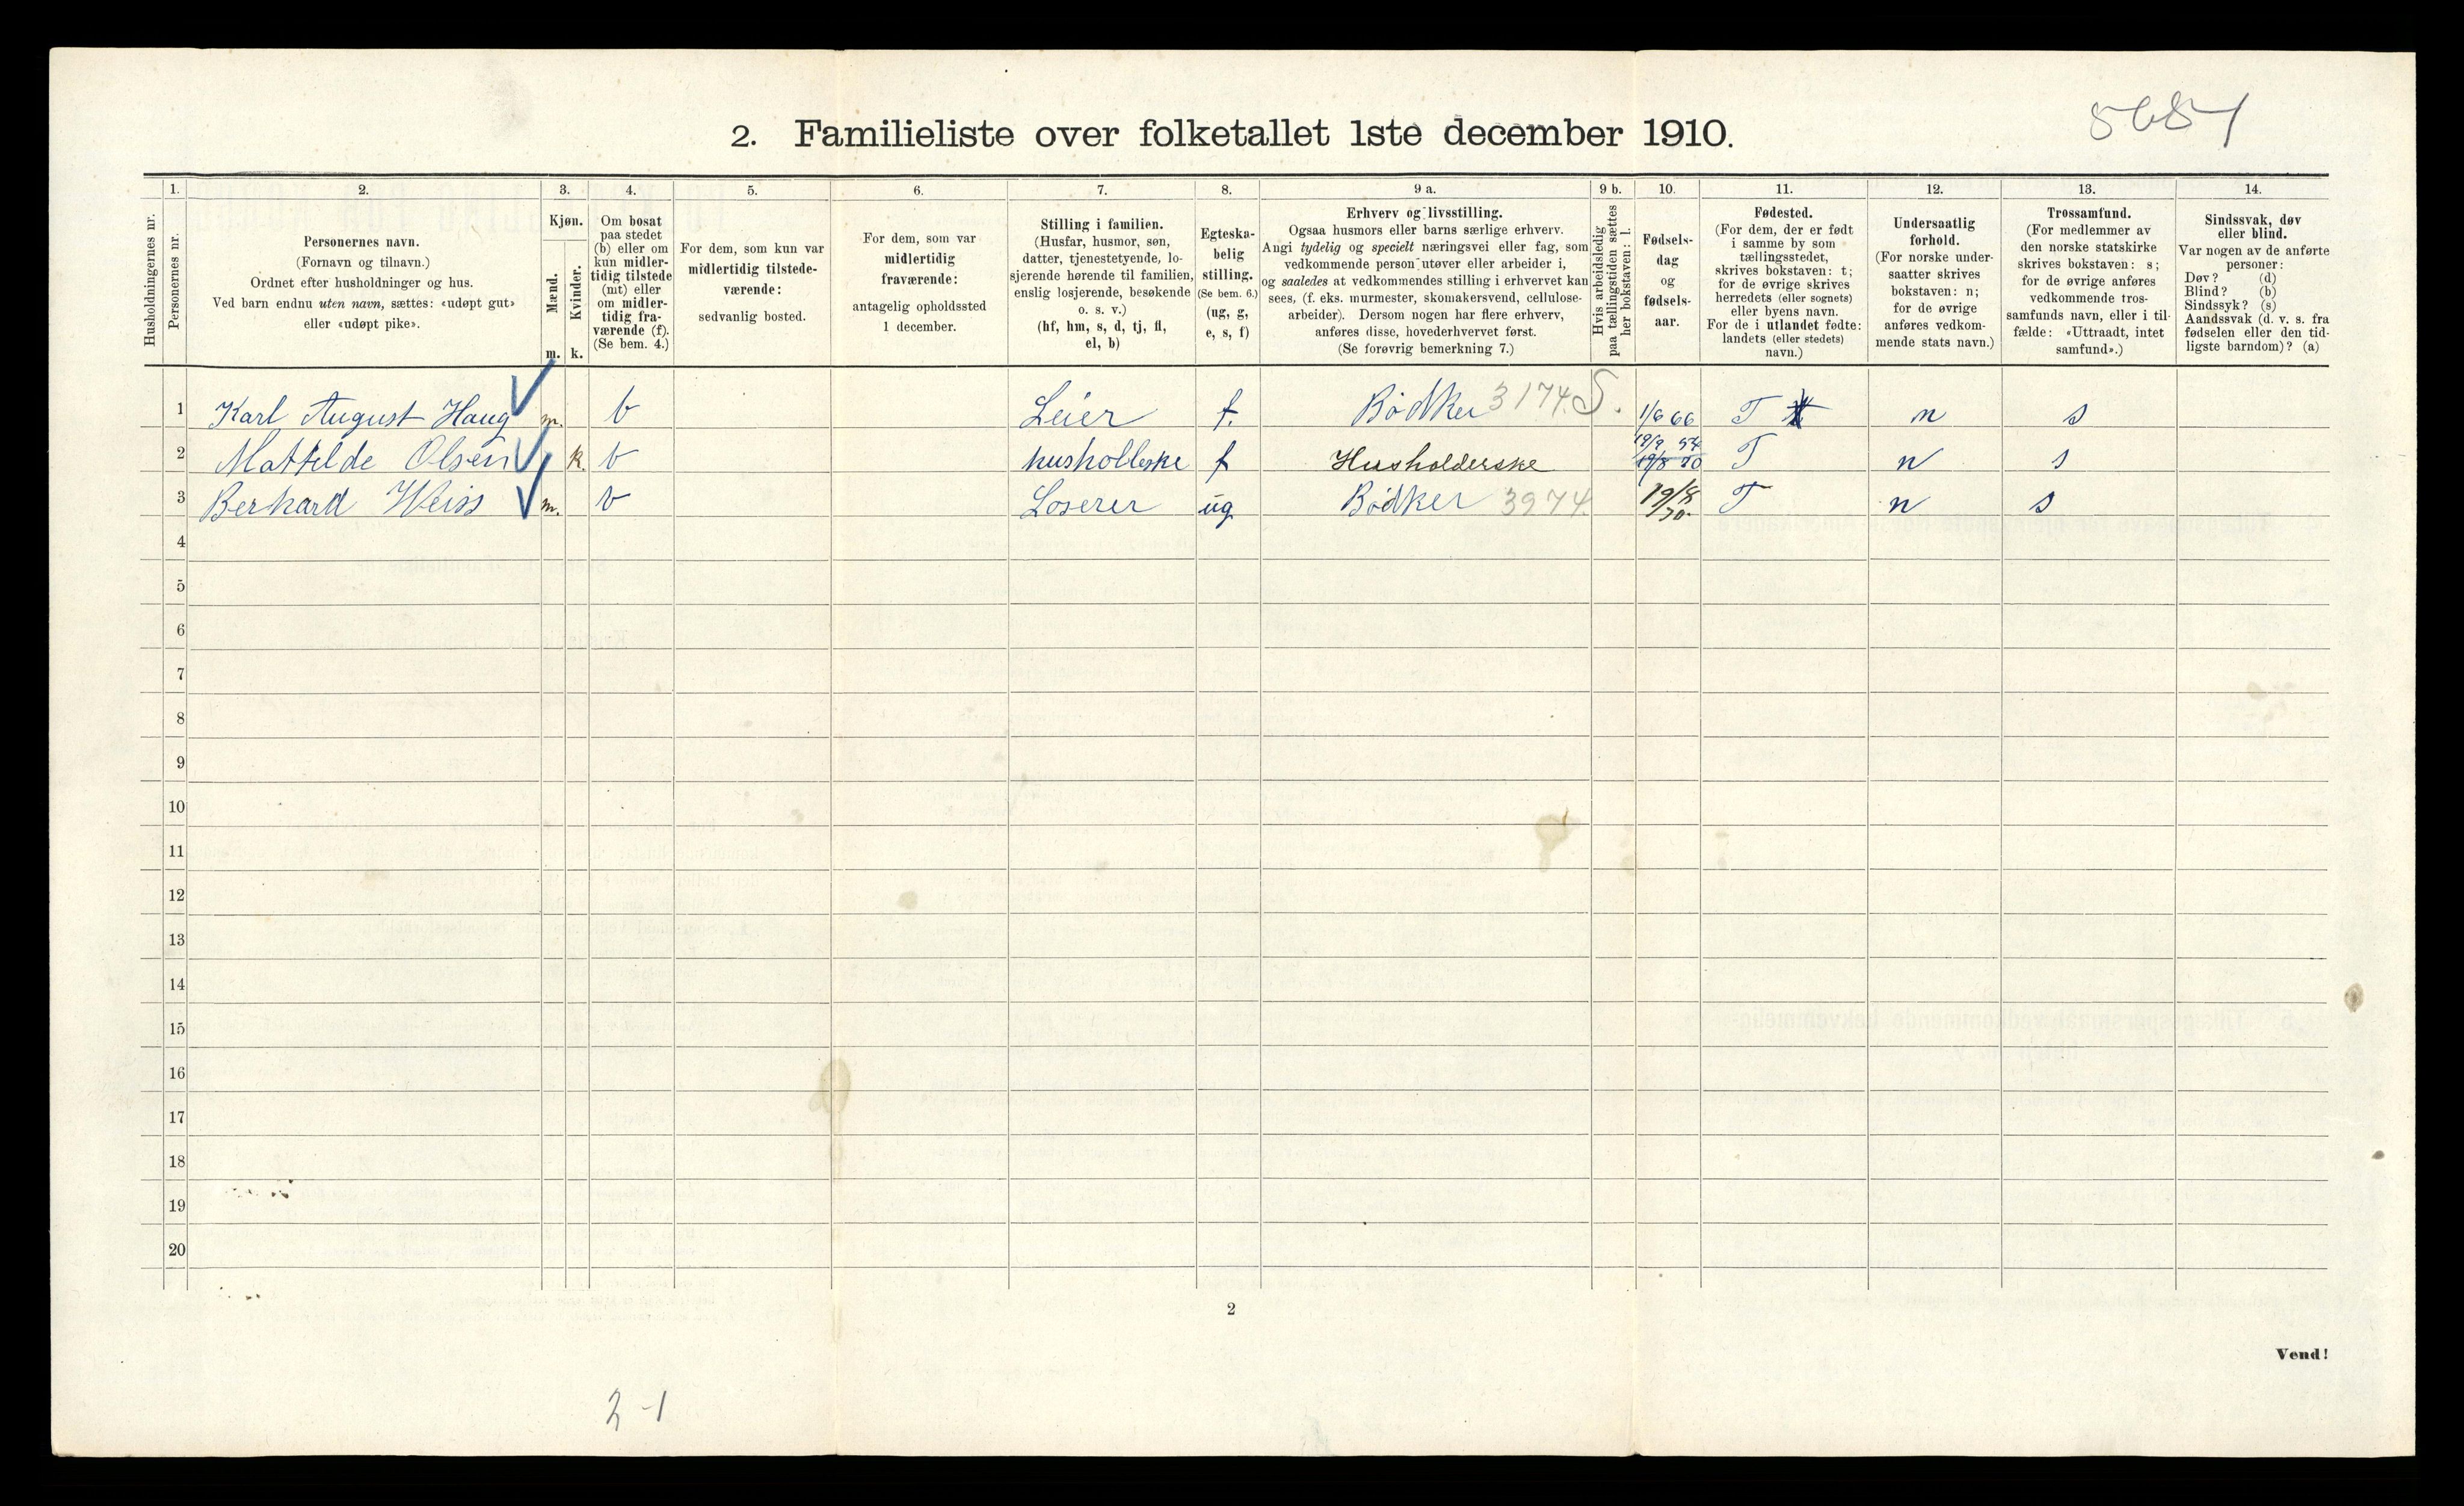 5684
2. Familieliste over folketallet 1ste december 1910.
1. 2. 3. 4. 5. 6. 7. 8. 9 a. 9 b. 10. 11. 12. 13. 14.
Husholdningernes nr.
Personernes nr.
Personernes navn.
(Fornavn og tilnavn.)
Ordnet efter husholdninger og hus.
Ved barn endnu uten navn, sættes: «udøpt gut»
eller «udøpt pike».
Kjøn.
Mænd.
Kvinder.
m. k.
Om bosat
paa stedet
(b) eller om
kun midler-
tidig tilstede
(mt) eller
om midler-
tidig fra-
værende (f).
(Se bem. 4.)
For dem, som kun var
midlertidig tilstede-
værende:
sedvanlig bosted.
For dem, som var
midlertidig
fraværende:
antagelig opholdssted
1 december.
Stilling i familien.
(Husfar, husmor, søn,
datter, tjenestetyende, lo-
sjerende hørende til familien,
enslig losjerende, besøkende
o. s. v.)
(hf, hm, s, d, tj, fl,
el, b)
Egteska-
belig
stilling.
(Se bem. 6.)
(ug, g,
e, s, f)
Erhverv og livsstilling.
Ogsaa husmors eller barns særlige erhverv.
Angi tydelig og specielt næringsvei eller fag, som
vedkommende person utøver eller arbeider i,
og saaledes at vedkommendes stilling i erhvervet kan
sees, (f. eks. murmester, skomakersvend, cellulose-
arbeider). Dersom nogen har flere erhverv,
anføres disse, hovederhvervet først.
(Se forøvrig bemerkning 7.)
Hvis arbeidsledig
paa tællingstiden sættes
her bokstaven: l.
Fødsels-
dag
og
fødsels-
aar.
Fødested.
(For dem, der er født
i samme by som
tællingsstedet,
skrives bokstaven: t;
for de øvrige skrives
herredets (eller sognets)
eller byens navn.
For de i utlandet fødte:
landets (eller stedets)
navn.)
Undersaatlig
forhold.
(For norske under-
saatter skrives
bokstaven: n;
for de øvrige
anføres vedkom-
mende stats navn.)
Trossamfund.
(For medlemmer av
den norske statskirke
skrives bokstaven: s;
for de øvrige anføres
vedkommende tros-
samfunds navn, eller i til-
fælde: «Uttraadt, intet
samfund».)
Sindssvak, døv
eller blind.
Var nogen av de anførte
personer:
Døv? (d)
Blind? (b)
Sindssyk? (s)
Aandssvak (d. v. s. fra
fødselen eller den tid-
ligste barndom)? (a)
1 Karl August Haug m. b Leier f. Bødker 3174 S. 1/6 66 T n s
2 Mathilde Olsen k. b husholleske f Husholderske 19/9 54 19/8 50 T n s
3 Berhard Weiss m. b Loserer ug Bødker 3974 19/8 70 T n s
4
5
6
7
8
9
10
11
12
13
14
15
16
17
18
19
20
2
Vend!
2-1